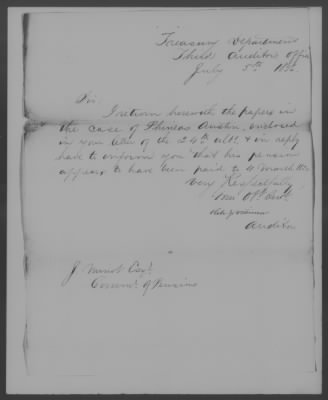 Treasury Department
Third Auditor's Office
July 5th 185
Sir:
I return herewith the papers in
the case of Phineas Austin, enclosed
in your letter of the 24th ult. & in reply
have to inform you that his pension
appears to have been paid to 4 March
Very Respectfully
Your Obt. Servt.
Auditor
J Minot Esqr.
Commr. of Pensions